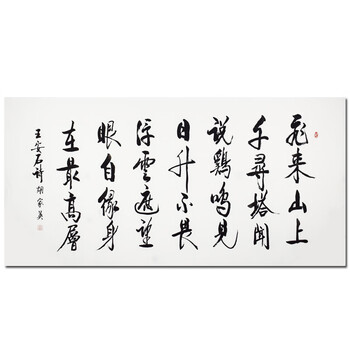 飛来山上
千尋塔聞
説鷄鳴見
日升不畏
浮雲遮望
眼自緣身
在最高層
王安石詩 胡家